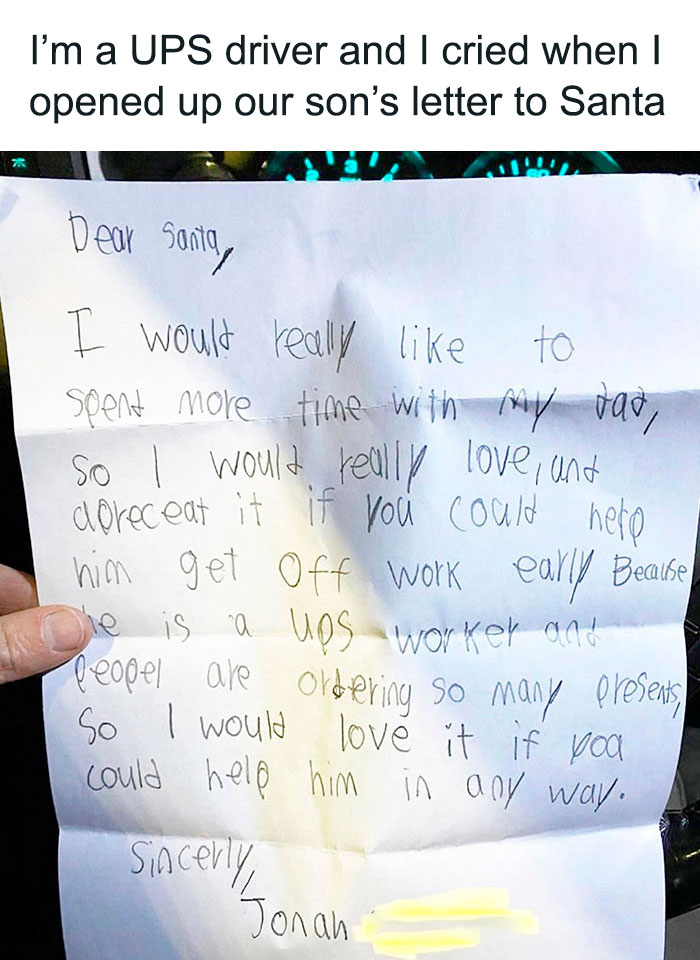 I'm a UPS driver and I cried when I
opened up our son's letter to Santa
Dear Santa,
I would really like to
spent more time with my dad,
So I would really love, and
apreceat it if you could help
him get off work early Because
he is a ups worker and
peopel are ordering so many presents,
So I would love it if you
could help him in any way.
Sincerly,
Jonah